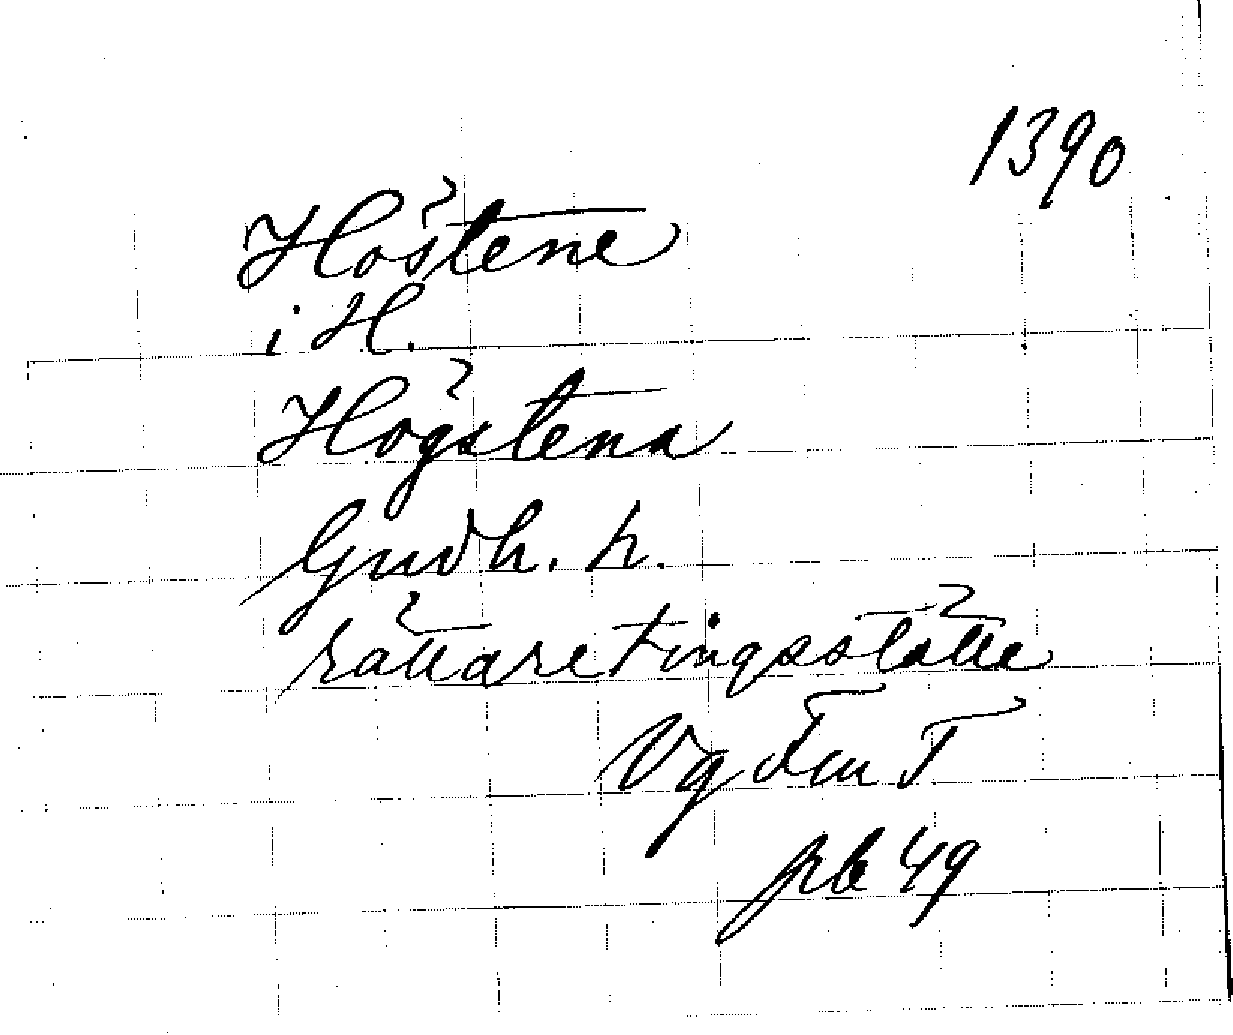 1390
Höstene
i H.
Högstena
Gudh. h.
rättaretingsställe
Vg Fm T
prb 49